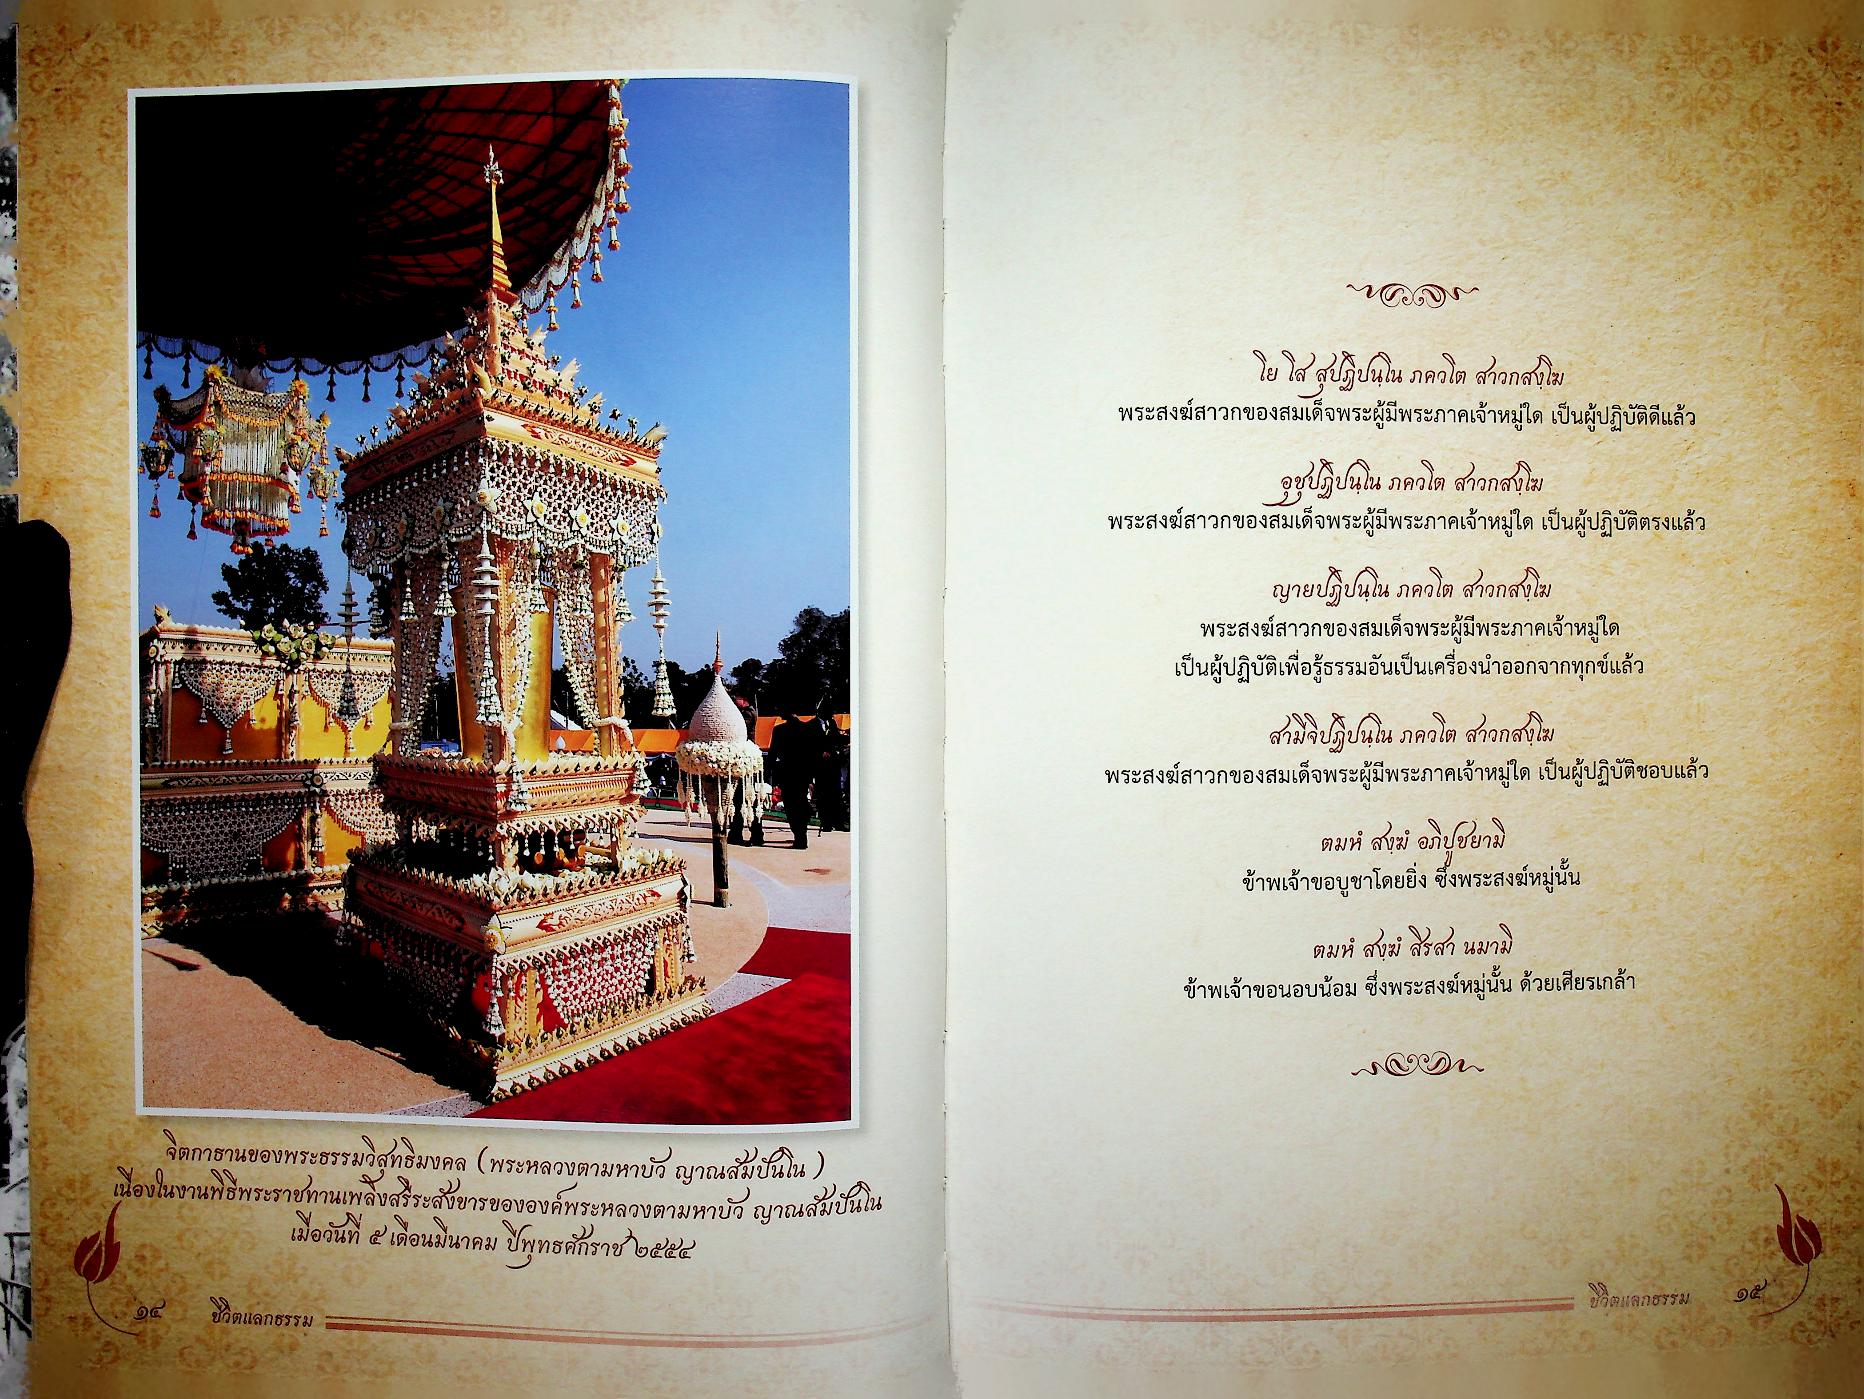 จิตกาธานของพระธรรมวิสุทธิมงคล (พระหลวงตามหาบัว ญาณสัมปันโน)
เนื่องในงานพิธีพระราชทานเพลิงสรีระสังขารขององค์พระหลวงตามหาบัว ญาณสัมปันโน
เมื่อวันที่ ๕ เดือนมีนาคม ปีพุทธศักราช ๒๕๕๔
๑๔ ชีวิตแลกธรรม
โย โส สุปฏิปนฺโน ภควโต สาวกสงฺโฆ
พระสงฆ์สาวกของสมเด็จพระผู้มีพระภาคเจ้าหมู่ใด เป็นผู้ปฏิบัติดีแล้ว
อุชุปฏิปนฺโน ภควโต สาวกสงฺโฆ
พระสงฆ์สาวกของสมเด็จพระผู้มีพระภาคเจ้าหมู่ใด เป็นผู้ปฏิบัติตรงแล้ว
ญายปฏิปนฺโน ภควโต สาวกสงฺโฆ
พระสงฆ์สาวกของสมเด็จพระผู้มีพระภาคเจ้าหมู่ใด
เป็นผู้ปฏิบัติเพื่อรู้ธรรมอันเป็นเครื่องนำออกจากทุกข์แล้ว
สามีจิปฏิปนฺโน ภควโต สาวกสงฺโฆ
พระสงฆ์สาวกของสมเด็จพระผู้มีพระภาคเจ้าหมู่ใด เป็นผู้ปฏิบัติชอบแล้ว
ตมหํ สงฺฆํ อภิปูชยามิ
ข้าพเจ้าขอบูชาโดยยิ่ง ซึ่งพระสงฆ์หมู่นั้น
ตมหํ สงฺฆํ สิรสา นมามิ
ข้าพเจ้าขอนอบน้อม ซึ่งพระสงฆ์หมู่นั้น ด้วยเศียรเกล้า
ชีวิตแลกธรรม ๑๕